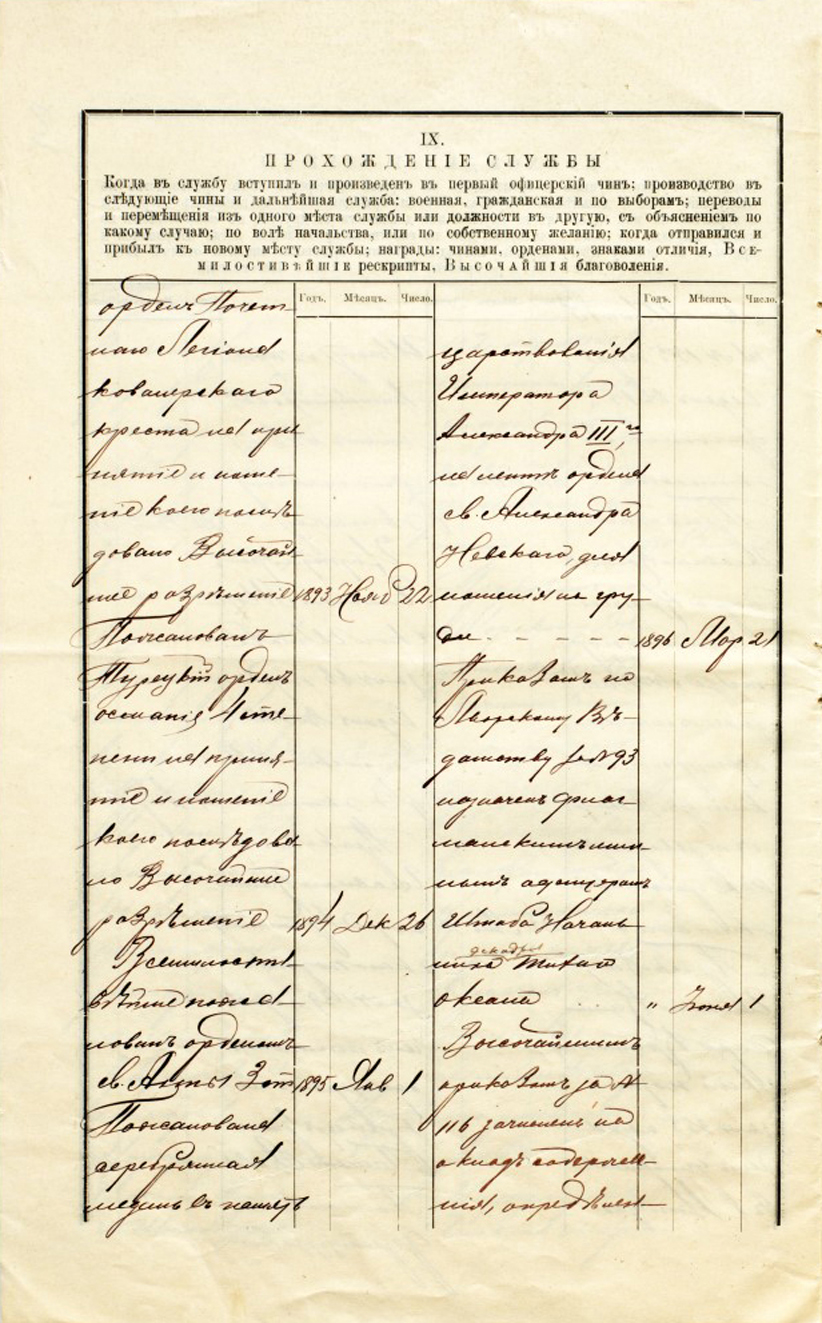 IX.
ПРОХОЖДЕНІЕ СЛУЖБЫ
Когда въ службу вступилъ и произведенъ въ первый офицерскій чинъ; производство въ
слѣдующіе чины и дальнѣйшая служба: военная, гражданская и по выборамъ; переводы
и перемѣщенія изъ одного мѣста службы или должности въ другую, съ объясненіемъ по
какому случаю; по волѣ начальства, или по собственному желанію; когда отправился и
прибылъ къ новому мѣсту службы; награды: чинами, орденами, знаками отличія, Все-
милостивѣйшіе рескрипты, Высочайшія благоволенія.
Годъ. Мѣсяцъ. Число.
орденъ Почет-
наго Легіона
кавалерскаго
креста на при
нятіе иноше-
ніе коего послѣ
довало Высочай
шее разрѣшеніе 1893 Нояб 22
Пожалованъ
Турецкій орденъ
Османіе 4 сте-
пени на приня-
тіе и ношеніе
коего послѣдова
ло Высочайшее
разрѣшеніе 1894 Дек 26
Всемилости
вѣйше пожа-
лованъ орденомъ
св. Анны 3 ст 1895 Янв 1
Пожалована
серебрянная
медаль въ память
Годъ. Мѣсяцъ. Число.
царствованія
Императора
Александра III го
на лентѣ ордена
св. Александра
Невскаго, для
ношенія на гру-
ди - - - - - 1896 Мар 21
Приказомъ по
Морскому Вѣ-
домству за № 93
назначенъ флаг
манскимъ мин-
нымъ офицеромъ
Штаба Началь-
ника эскадры Тихаго
океана . . " Іюня 1
Высочайшимъ
приказомъ за №
116 зачисленъ на
окладъ содержа-
нія, опредѣлен-